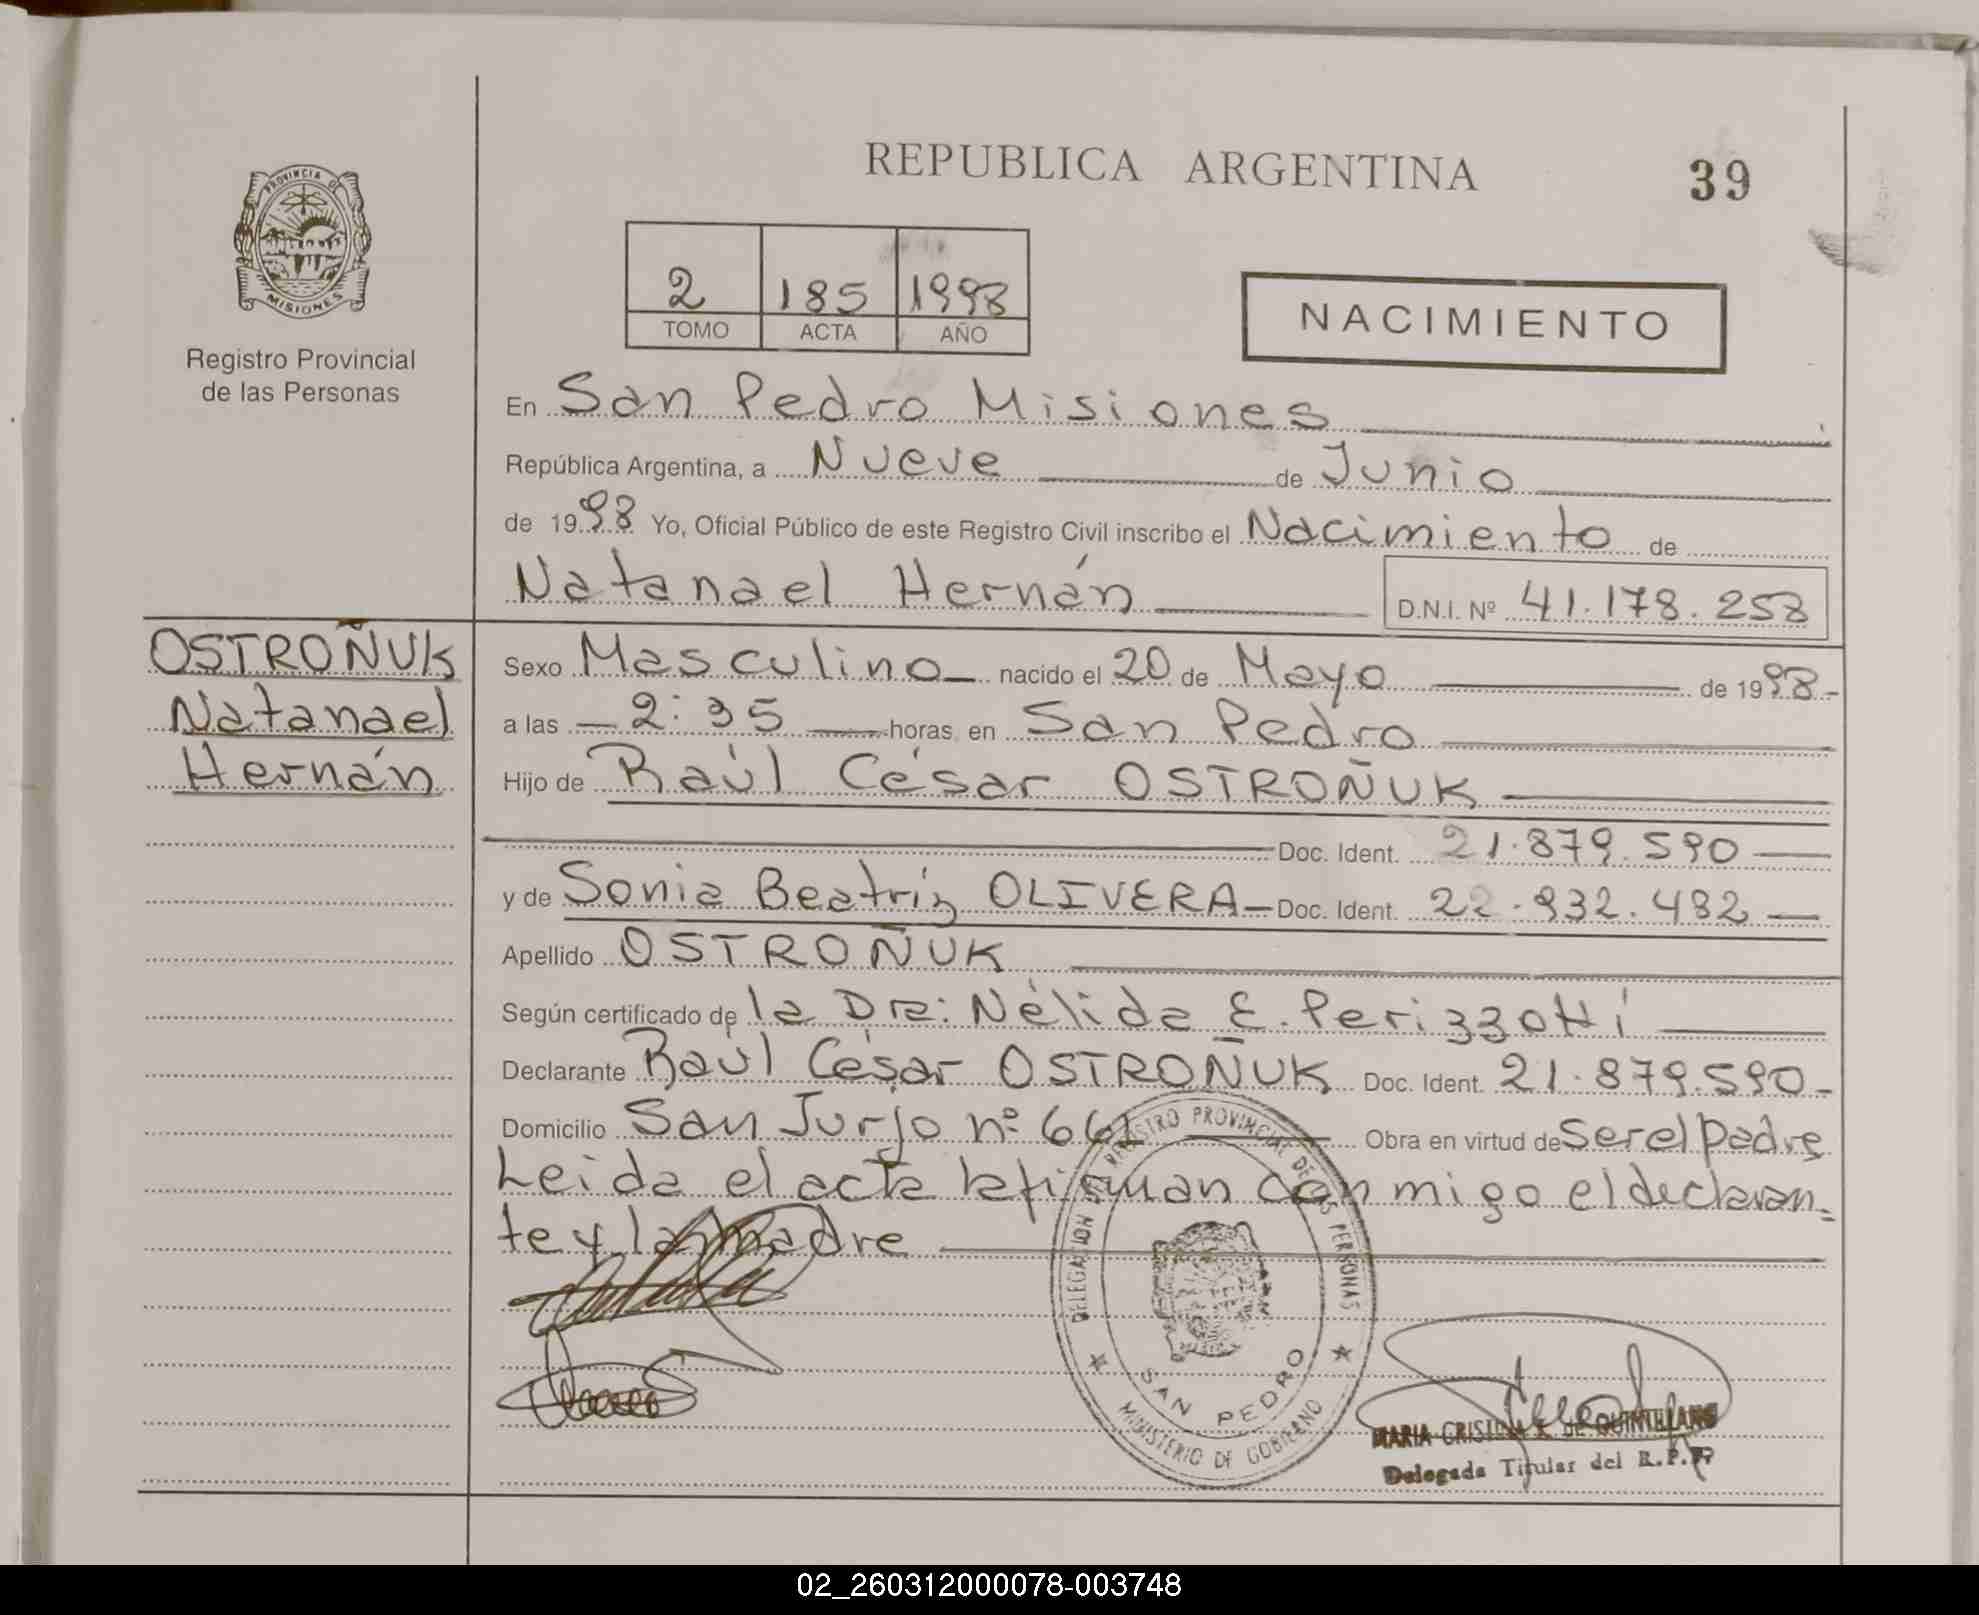 REPUBLICA ARGENTINA
39
PROVINCIA DE
MISIONES
Registro Provincial
de las Personas
2 185 1998
TOMO ACTA AÑO
NACIMIENTO
En San Pedro Misiones
República Argentina, a Nueve de Junio
de 1998 Yo, Oficial Público de este Registro Civil inscribo el Nacimiento de
Natanael Hernán D.N.I. Nº 41.178.258
OSTROÑUK
Natanael
Hernán
Sexo Masculino nacido el 20 de Mayo de 1998-
a las 2:35 horas en San Pedro
Hijo de Raúl César OSTROÑUK
Doc. Ident. 21.879.590
y de Sonia Beatriz OLIVERA Doc. Ident. 22.932.482
Apellido OSTROÑUK
Según certificado de la Dra: Nélida E. Perizzotti
Declarante Raúl César OSTROÑUK Doc. Ident. 21.879.590-
Domicilio San Jurjo nº 661 Obra en virtud de Ser el padre
Leida el acta la firman conmigo el declaran=
te y la madre
DELEGACION DEL REGISTRO PROVINCIAL DE LAS PERSONAS
SAN PEDRO
MINISTERIO DE GOBIERNO
MARIA CRISTINA DE QUINTILLANS
Delegada Titular del R.P.P.
02_260312000078-003748